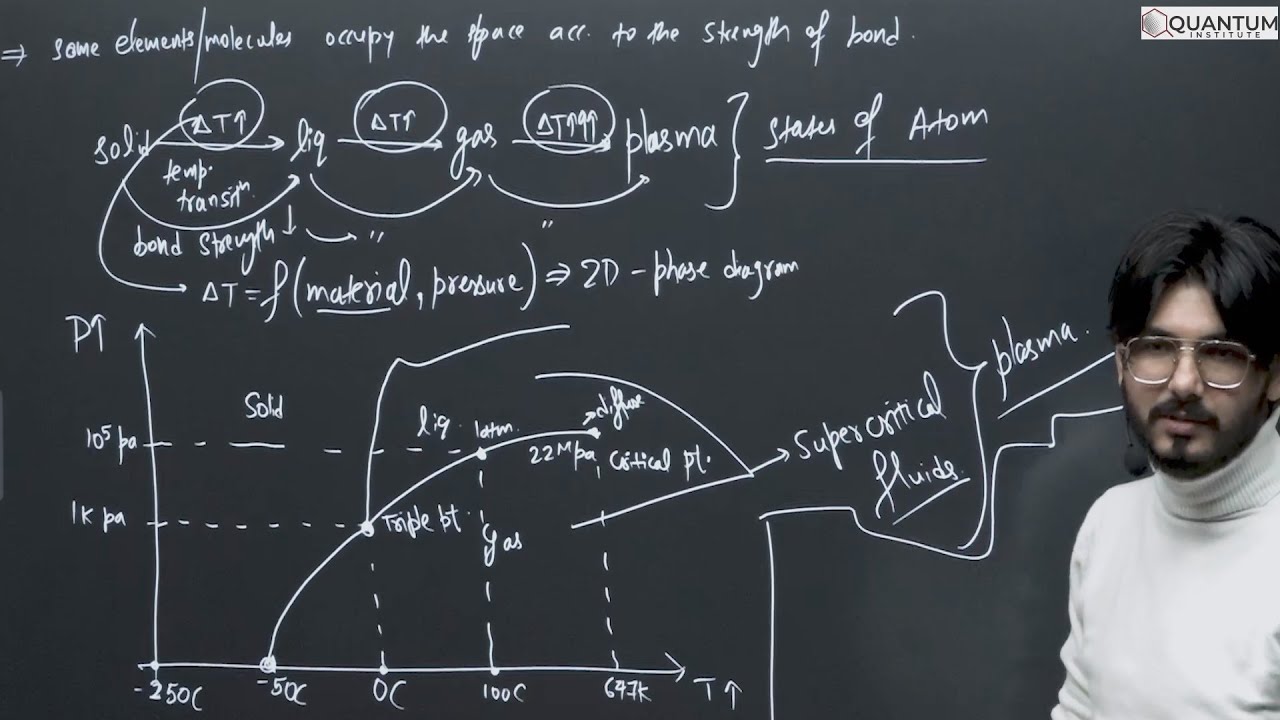 QUANTUM
INSTITUTE
⇒ some elements/molecules occupy the space acc. to the strength of bond.
solid ΔT↑ liq ΔT↑ gas ΔT↑↑↑ plasma } states of Atom
temp.
transitn.
bond strength ↓ → " "
ΔT = f(material, pressure) ⇒ 2D - phase diagram
P↑
plasma.
Solid
liq.
1atm.
diffuse
Supercritical
fluids.
10⁵ pa
22Mpa
Critical pt.
1K pa
Triple pt.
gas
-250C
-50C
0C
100C
647K
T↑